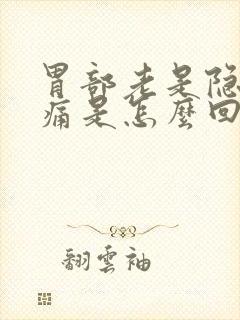 胃部老是隐
痛是怎麼回
翻雲袖